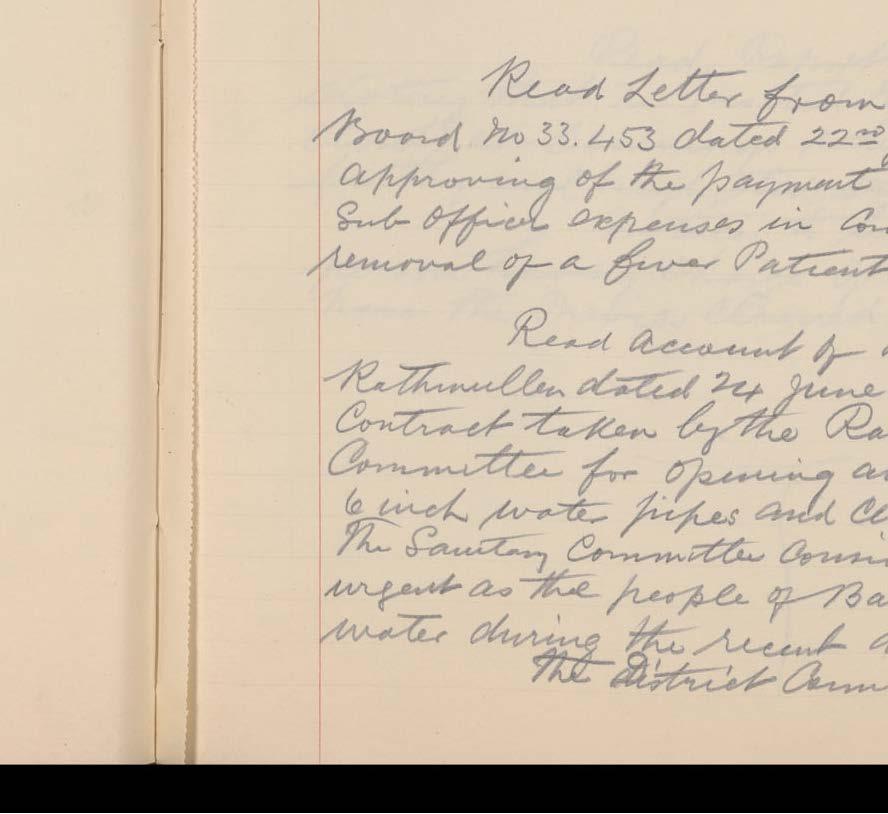 Read Letter from
Board No 33.453 dated 22nd
approving of the payment
Sub Officer expenses in con
removal of a fever Patient
Read account of
Rathmullen dated 24 June
Contract taken by the Ra
Committee for opening a
6 inch water pipes and cl
The Sanitary Committee consi
urgent as the people of Ba
water during the recent d
The District Comm